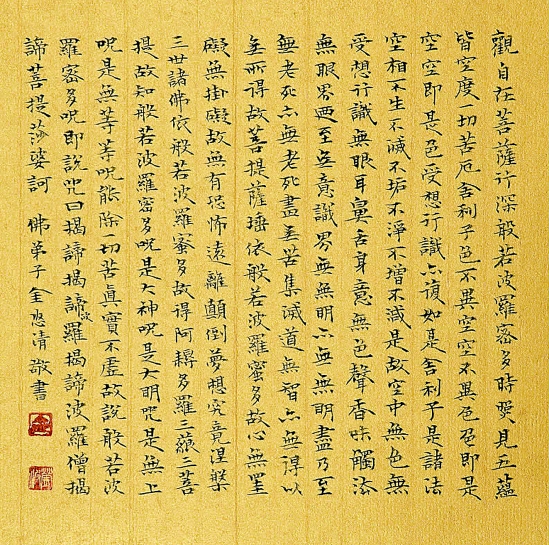 觀自在菩薩行深般若波羅密多時照見五蘊
皆空度一切苦厄舍利子色不異空空不異色色即是
空空即是色受想行識亦復如是舍利子是諸法
空相不生不滅不垢不淨不增不減是故空中無色無
受想行識無眼耳鼻舌身意無色聲香味觸法
無眼界乃至無意識界無無明亦無無明盡乃至
無老死亦無老死盡無苦集滅道無智亦無得以
無所得故菩提薩埵依般若波羅蜜多故心無罣
礙無掛礙故無有恐怖遠離顛倒夢想究竟涅槃
三世諸佛依般若波羅蜜多故得阿耨多羅三藐三菩
提故知般若波羅密多呪是大神呪是大明呪是無上
呪是無等等呪能除一切苦真實不虛故說般若波
羅密多呪即說呪曰揭諦揭諦波羅揭諦波羅僧揭
諦菩提莎婆訶 佛弟子金清敬書